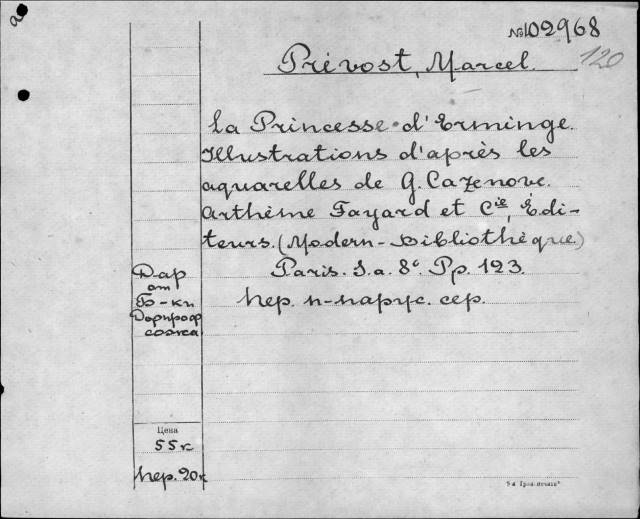 №102968
120
Prévost, Marcel.
La Princesse d'Erminge.
Illustrations d'après les
aquarelles de G. Cazenove.
Arthème Fayard et Cie, Édi-
teurs. (Modern-Bibliothèque)
Paris. S. a. 8°. Pp. 123.
Пер. п-парус. сер.
Дар
от
Б-ки
Дорпроф
сожа
Цена
55 к
Пер. 20 к